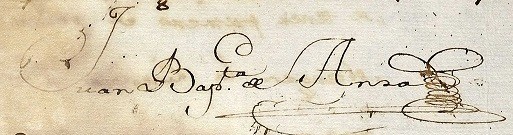 Juan Bap.ta de Anza